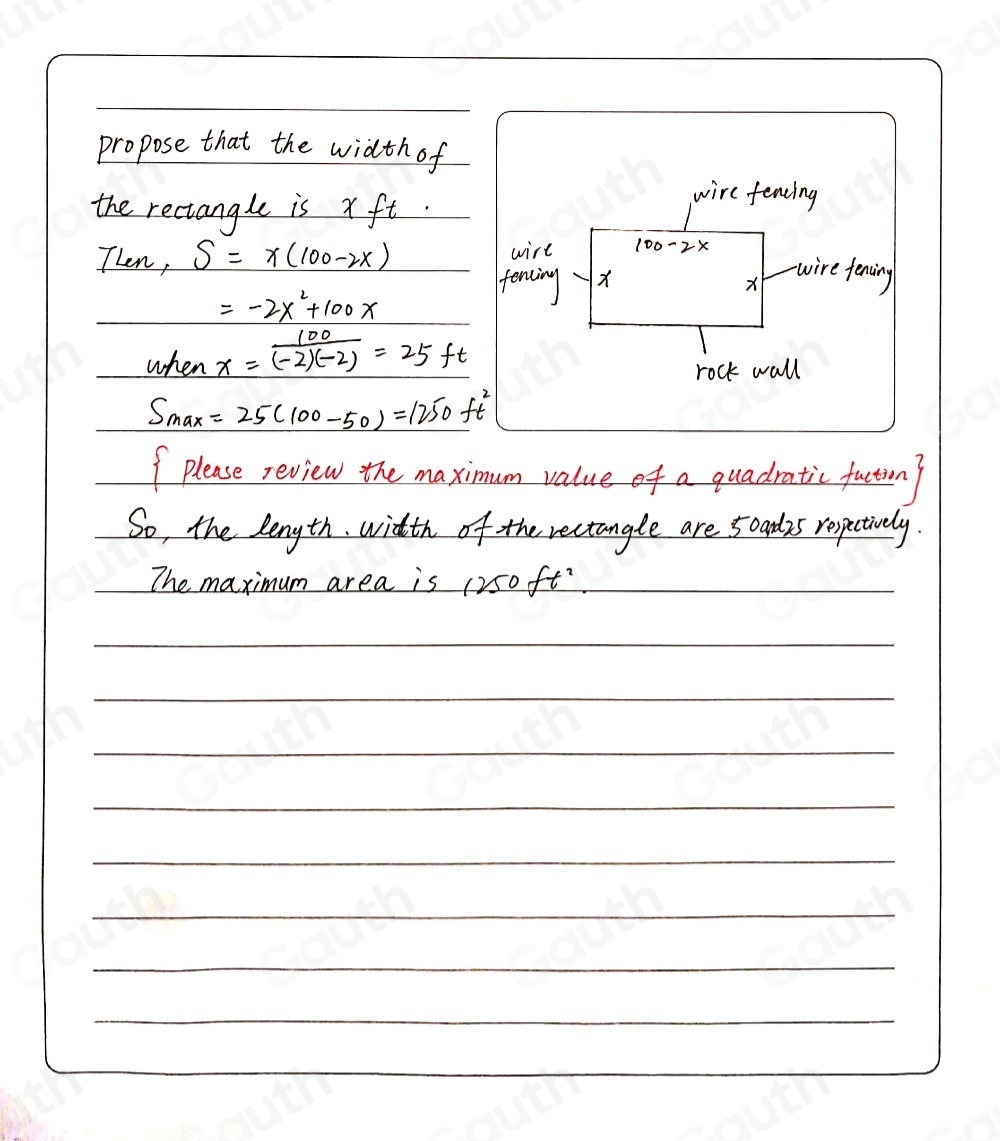 propose that the width of
the rectangle is x ft .
Then, S = x(100-2x)
= -2x²+100x
when x = 100/(-2)(-2) = 25 ft
Smax = 25(100-50) = 1250 ft²
wire fencing
100-2x
wire fencing
x
x
wire fencing
rock wall
{ Please review the maximum value of a quadratic fuction }
So, the length . width of the rectangle are 50 and 25 respectively.
The maximum area is 1250 ft².
Gauth